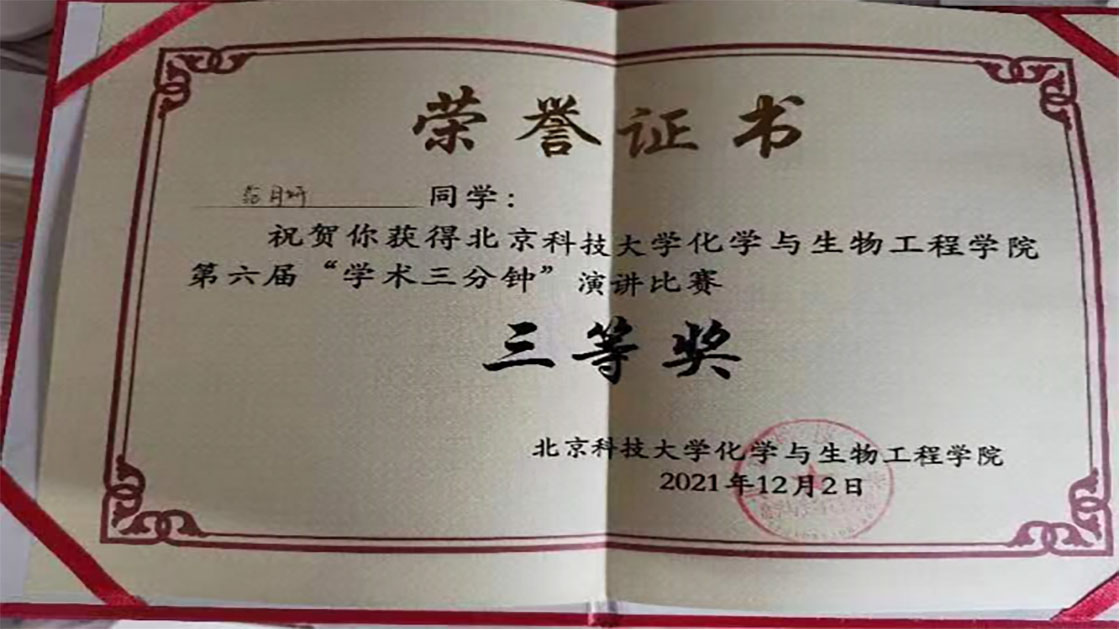 荣誉证书
月妍 同学：
祝贺你获得北京科技大学化学与生物工程学院
第六届“学术三分钟”演讲比赛
三等奖
北京科技大学化学与生物工程学院
2021年12月2日